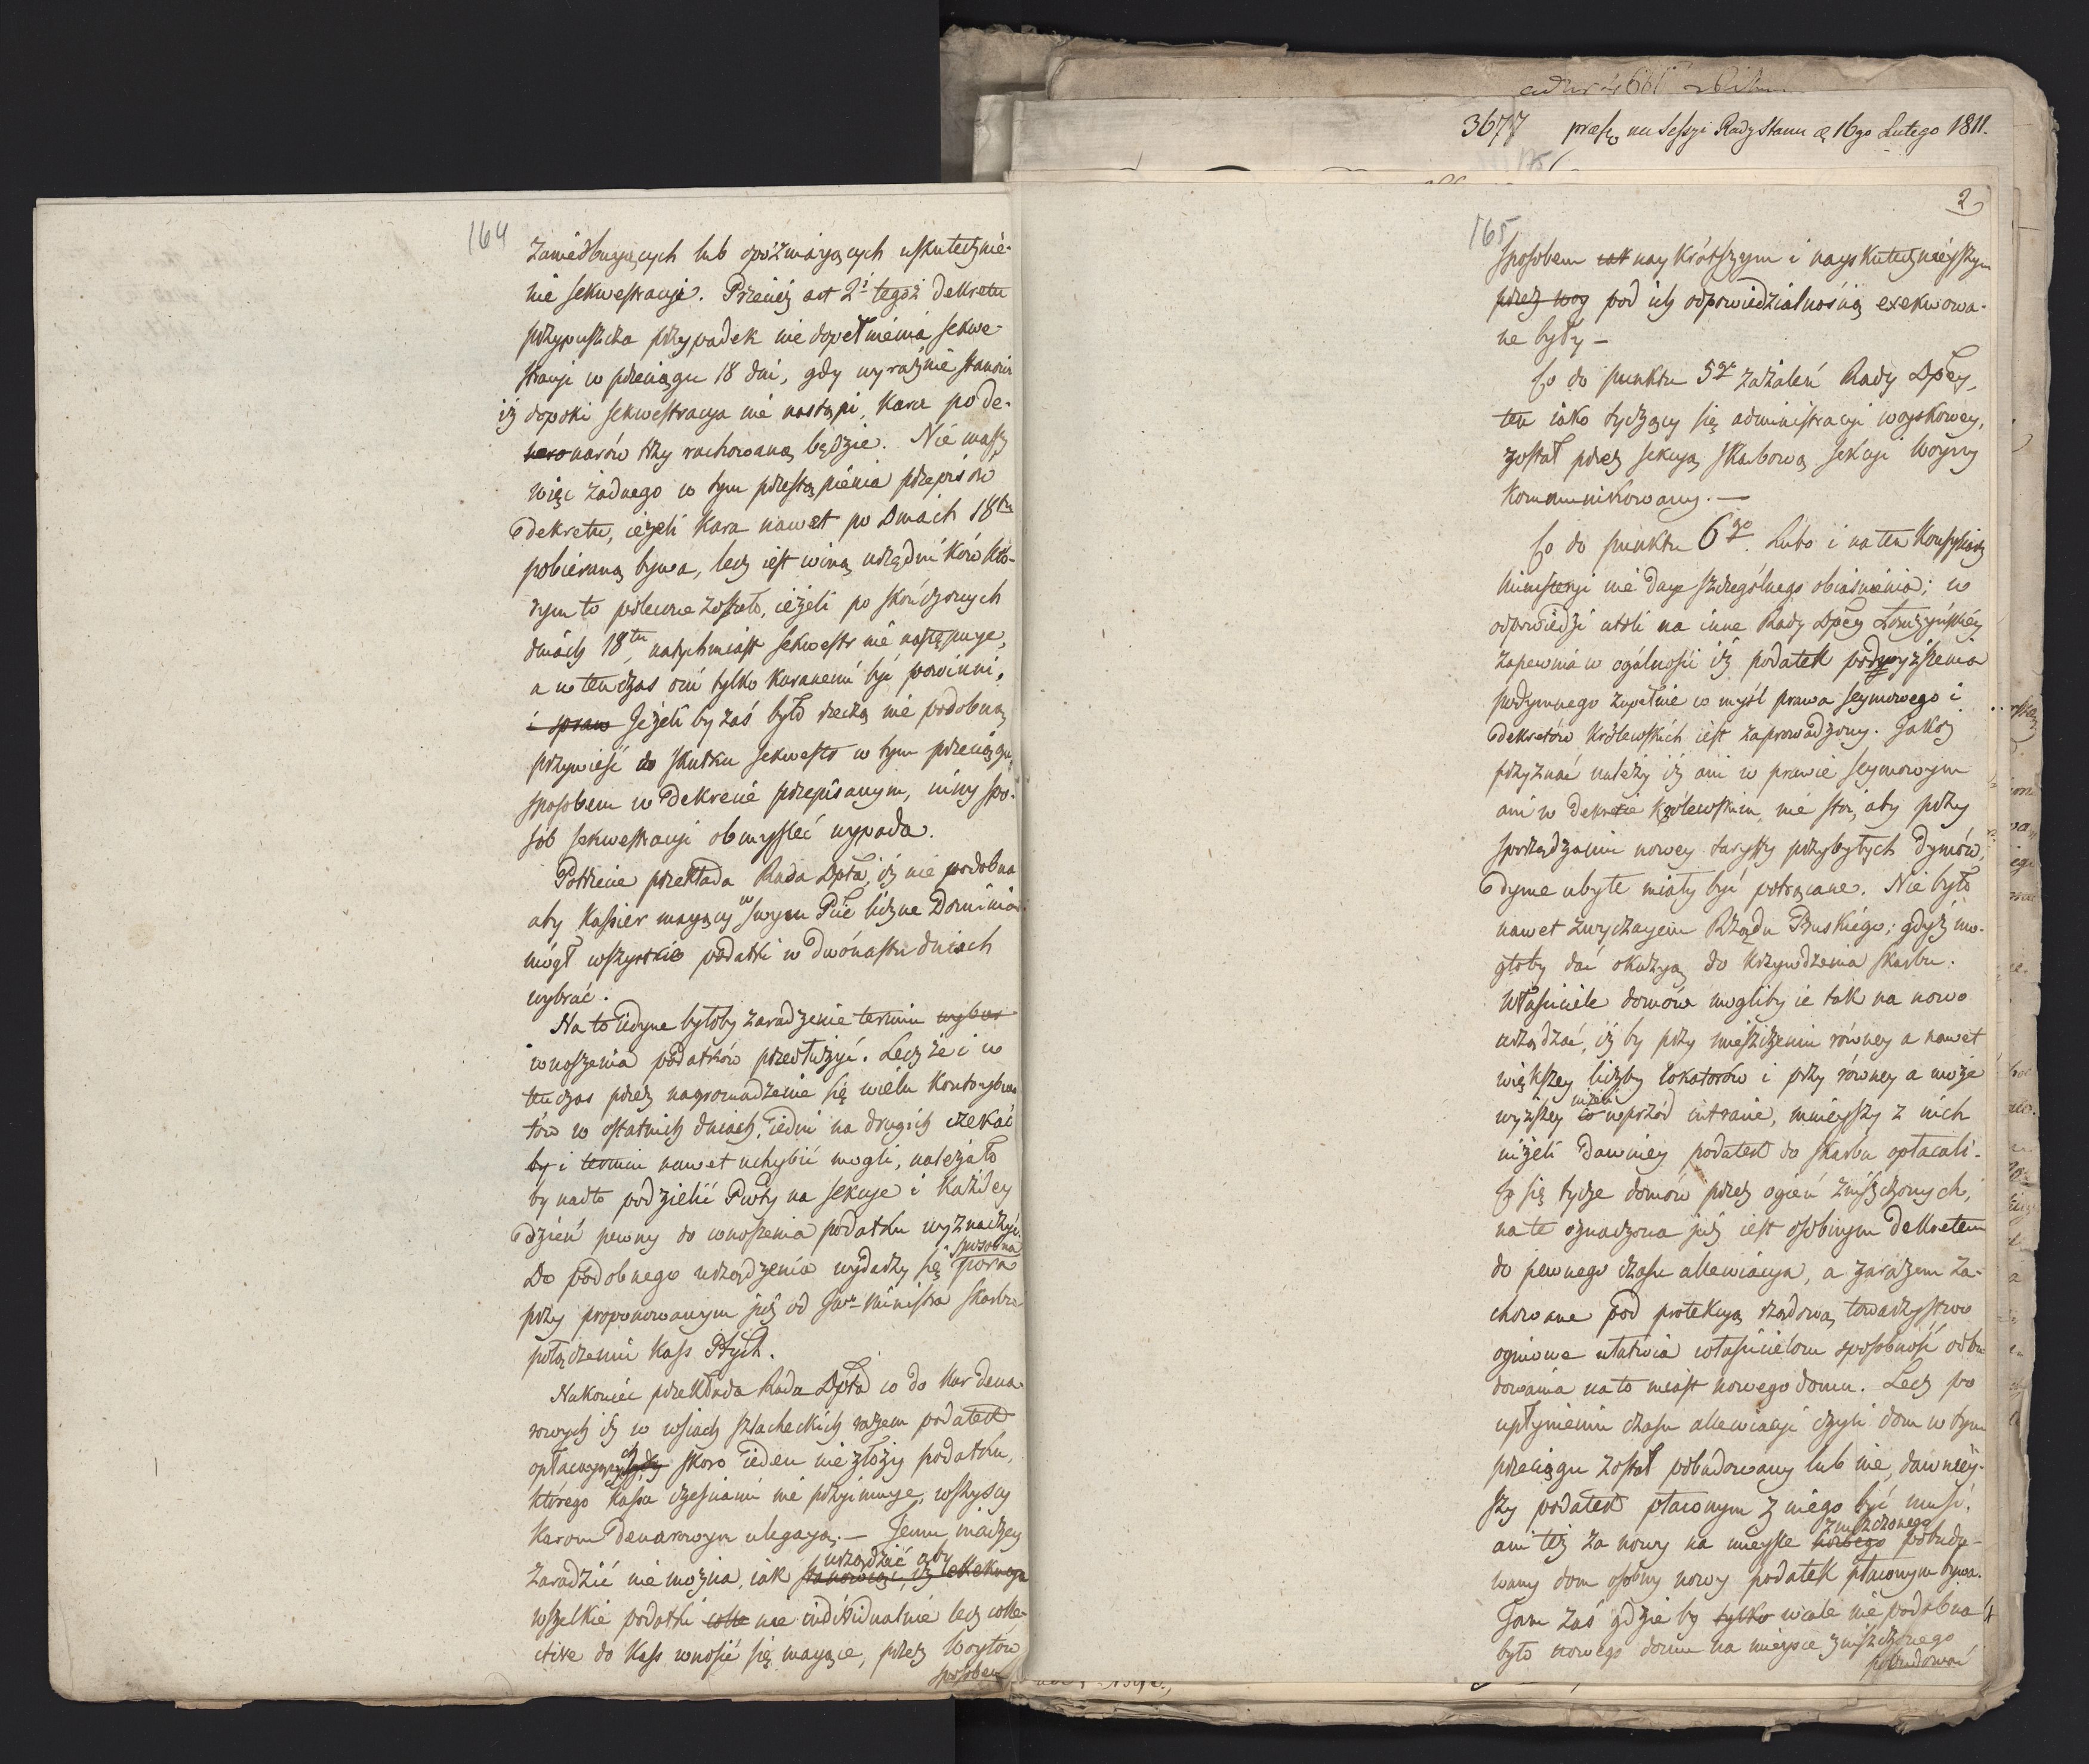 3677 na Sessyi Rady Stanu d. 16go Lutego 1811.
164
zaniedbuiących lub opóźniaiących uskutecznie-
nie sekwestracyi. Przeciż art 2i tegoż dekretu
przypuszcza przypadek nie dopełnienia sekwe-
stracyi w przeciągu 18 dni, gdy wyraźnie stanowi
iż dopoki sekwestracya nie nastąpi, kara po de-
narów trzy rachowaną będzie. Nie masz
więc żadnego w tym przestąpienia przepisów
dekretu, ieżeli kara nawet po dniach 18tu
pobieraną bywa, lecz iest winą urzędników któ-
rym to polecone zostało, ieżeli po skończonych
dniach 18tu, natychmiast sekwestr nie następuye,
a w ten czas oni tylko karanemi być powinni.
i spraw Jeżeli by zaś było rzeczą nie podobną
przywieść do skutku sekwestr w tym przeciągu,
sposobem w dekrecie przepisanym, inny spo-
sób sekwestracyi obmyśleć wypada.
Potrzecie przekłada Rada Dptta, iż nie podobna
aby Kassier maiący w swym Pcie liczne Dominia
mógł wszystkie podatki w dwónastu dniach
wybrać.
Na to iedyne byłoby zaradzenie termin wybier
wnoszenia podatków przedłużyć. Lecz że i w
ten czas przez nagromadzenie się wielu kontrybuen
tów w ostatnich dniach, iedni na drugich czekać
by i termin nawet uchybić mogli, należało
by nadto podzielić Pwty na sekcye i każdey
dzień pewny do wnoszenia podatku wyznaczyć.
Do podobnego urządzenia wydarzy się sposobna pora
przy proponowanym już od JWo Ministra Skarbu
połączeniu Kass Ptych.
Nakoniec przekłada Rada Dptta co do kar dena-
rowych iż w wsiach szlacheckich razem podatek
opłacaiących skoro ieden nie złoży podatku,
którego kassa cześciami nie przyimuye, wszyscy
karom denarowym ulegaią. — Jemu inaczey
zaradzić nie można, iak stanowiąc, iż urządzić aby
wszelkie podatki colle nie individualnie lecz colle-
ctive do Kass wnosić się maiące, przez Woytów
sposobem
2
165
sposobem iak nay krótszym i nayskutecznieyszym
przez woy pod ich odpowiedzialnością exekwowa-
ne były —
Co do punktu 5go zażaleń Rady Dptey,
ten iako tyczący się administracyi woyskowey,
został przez sekcyą skarbową sekcyi Woyny
kommunikowany. —
Co do punktu 6go. Lubo i na ten
Ministeryi nie daye szczególnego obiaśnienia; w
odpowiedzi atoli na inne Rady Dptey Łomżyńskiey
zapewnia w ogólności iż podatek podwyższenia
podymnego zupełnie w myśl prawa seymowego i
dekretów Królewskich iest zaprowadzony. Jakoż
przyznać należy iż ani w prawie seymowym
ani w dekrecie Królewskim, nie stoi, aby przy
sporządzaniu nowey taryffy przybyłych dymów,
dyme ubyłe miały być potrącane. Nie było
nawet zwyczayem Rządu Pruskiego; gdyż mo-
głoby dać okazyą do krzywdzenia skarbu.
Właściciele domów mogliby ie tak na nowo
urządzać, iż by przy mieszczeniu równey a nawet
większey liczby lokatorów i przy równey a może
wyższey niżeli co naprzód intracie, mnieyszy z nich
niżeli dawniey podatek do skarbu opłacali.
Co się tycze domów przez ogień zniszczonych,
na te oznaczona już iest osobnym dekretem
do pewnego czasu allewiacya, a zarazem za-
chowane pod protekcyą rządową towarzystwo
ogniowe ułatwia właścicielom sposobność odbu
dowania na to miast nowego domu. Lecz po
upłynieniu czasu allewiacyi czyli dom w tym
przeciągu został pobudowany lub nie, dawniey-
szy podatek płaconym z niego być musi,
ani też za nowy na mieysce nowego zniszczonego pobudo-
wany dom osobny nowy podatek płaconym bywa.
Tam zaś gdzie by tylko wcale nie podobna
było nowego domu na mieysce zniszczonego
pobudować